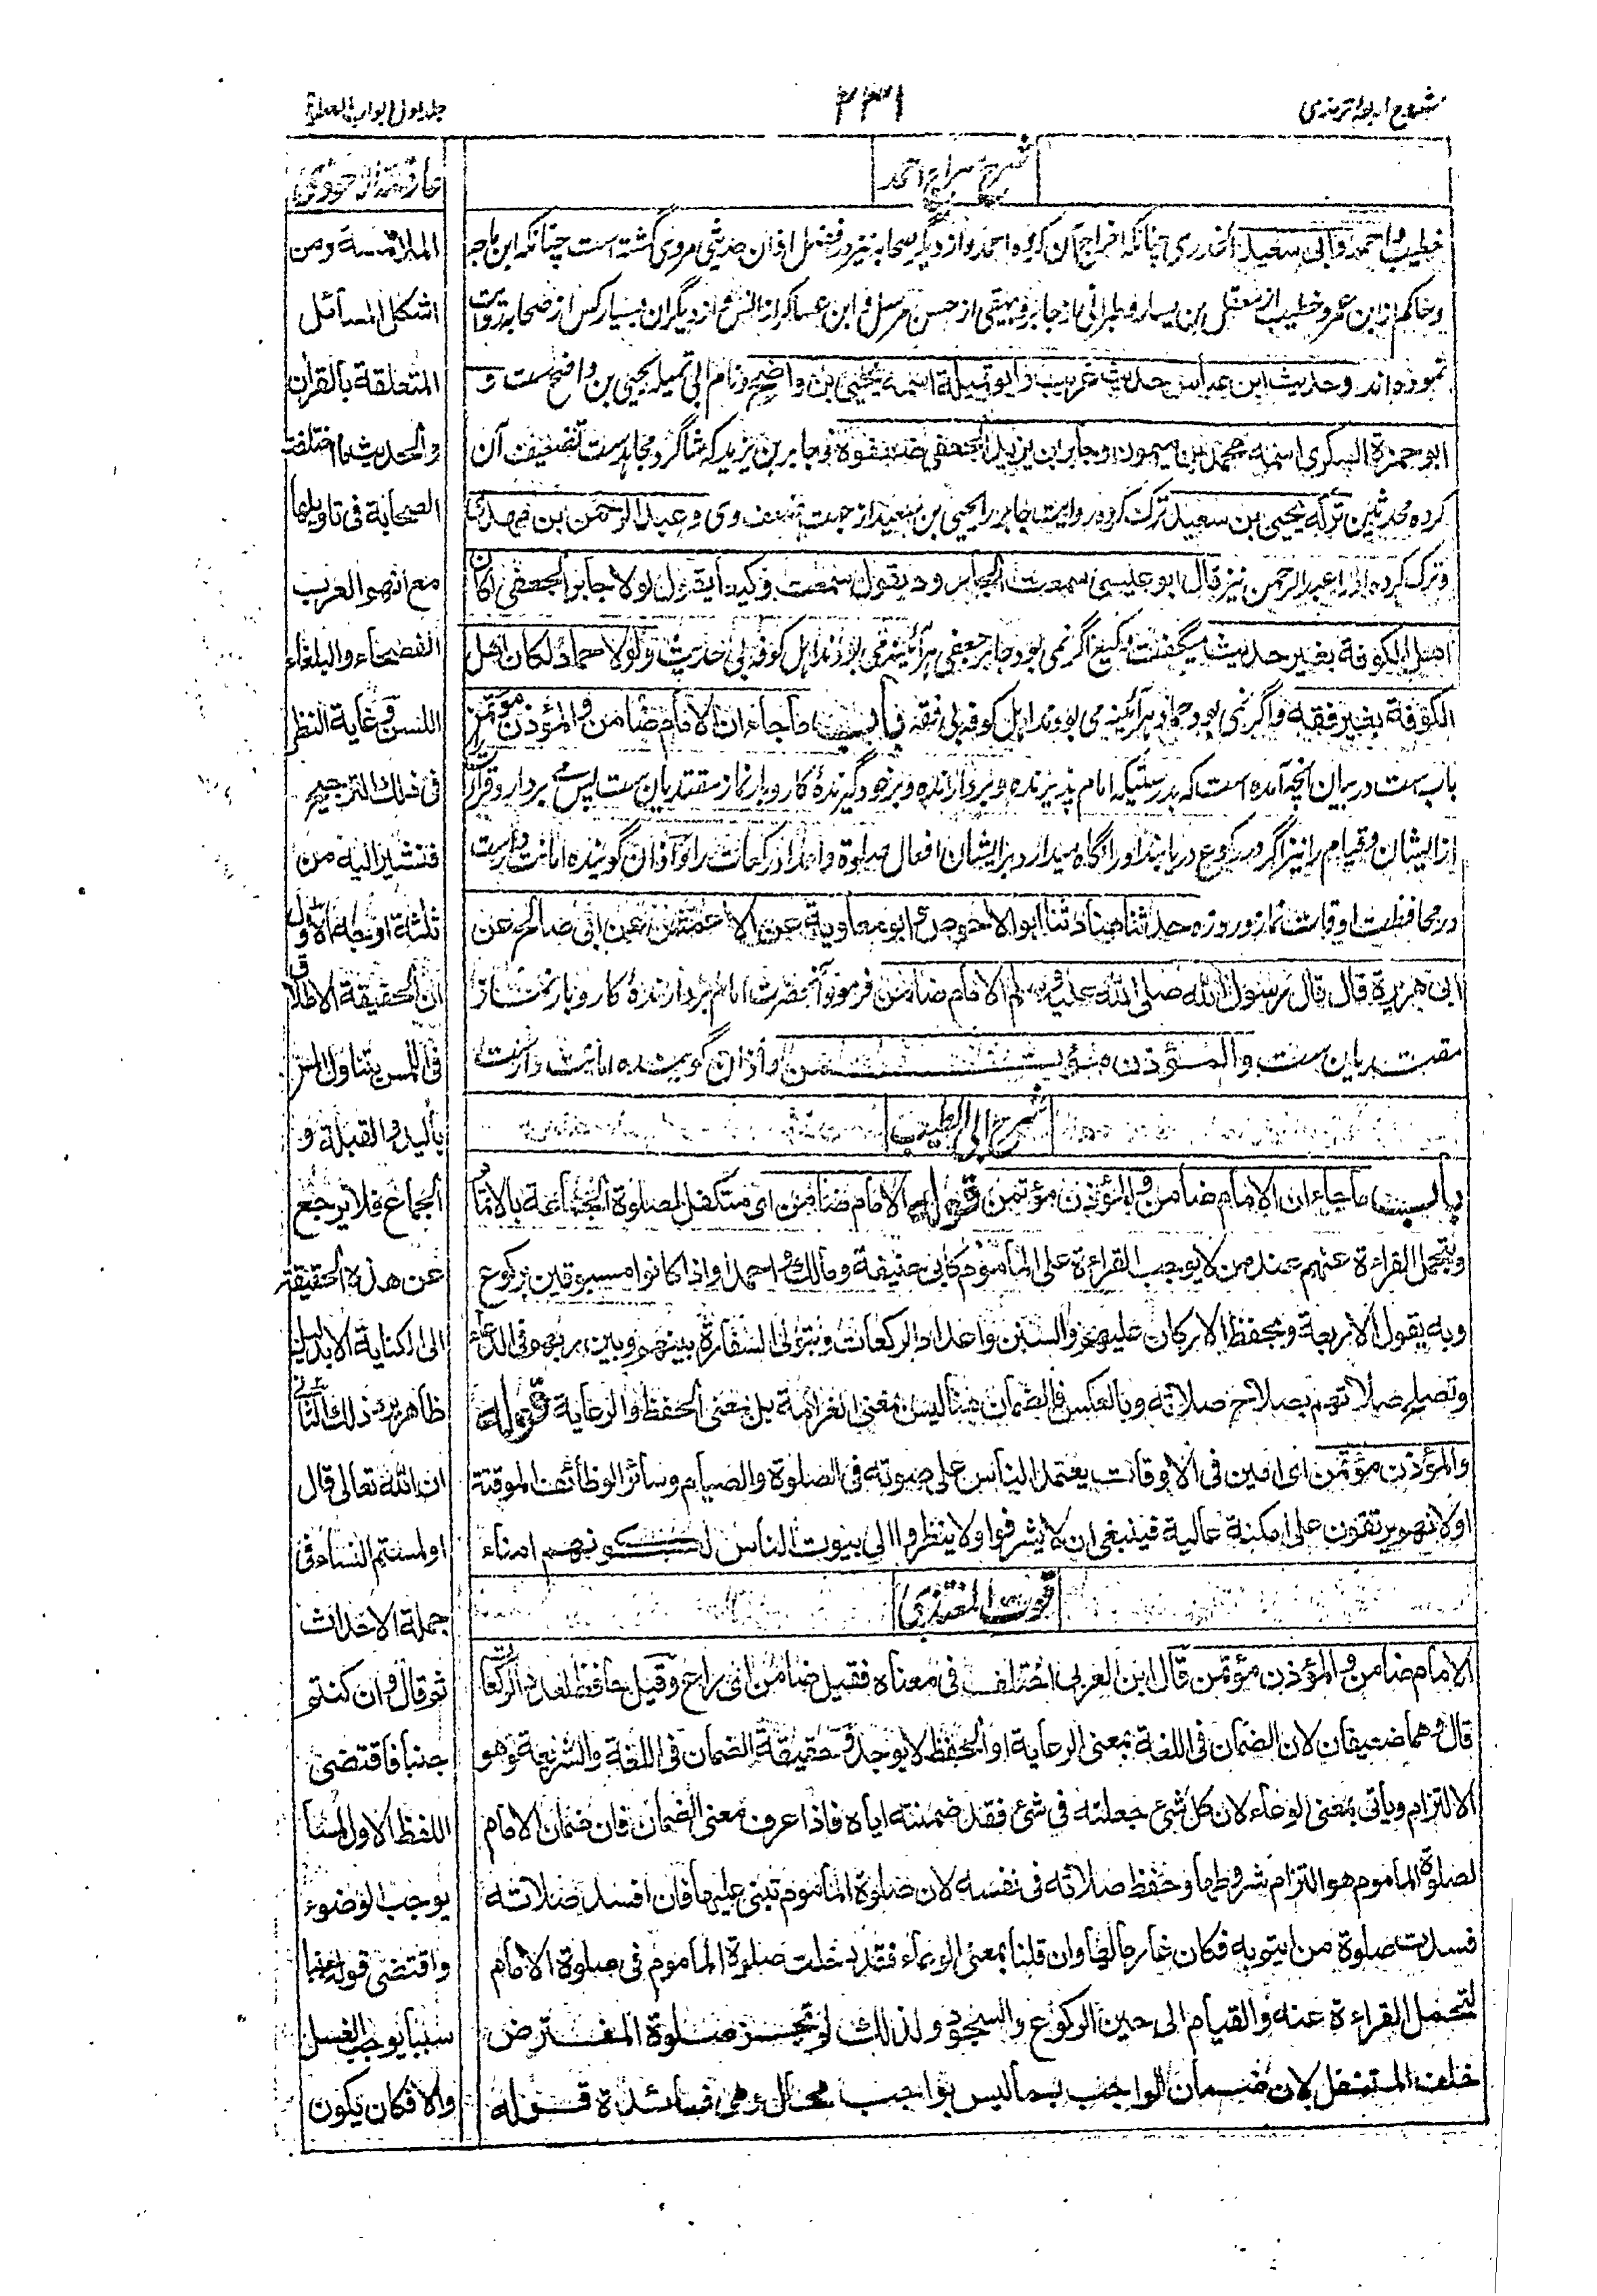 شروح اربعۂ ترمذی
۲۳۱
جلد اول ابواب الصلوٰة
شرح سراج احمد
خطیب واحمد وابی سعید الخدری چنانکہ اخراج آن کردہ احمد واز دیگر صحابہ نیز در فضل اذان حدیثی مروی گشتہ است چنانکہ ابن ماجہ
وحاکم از ابن عمر وخطیب از معقل بن یسار وطبرانی از جابر وبیہقی از حسن مرسل وابن عساکر از انس واز دیگران بسیار کس از صحابہ روایت
نمودہ اند وحدیث ابن عباس حدیث غریب وابو تمیلة اسمه یحیی بن واضح ونام ابی تمیلہ یحیی بن واضح ست و
ابو حمزة السکری اسمه محمد بن میمون وجابر بن یزید الجعفی ضعفوه وجابر بن یزید کہ شاگرد مجاہد ست تضعیف آن
کردہ محدثین ترکه یحیی بن سعید ترک کردہ روایت جابر را یحیی بن سعید از جہت ضعف وی وعبد الرحمن بن مهدی
وترک کردہ اورا عبد الرحمن نیز قال ابو عیسی سمعت الجارود یقول سمعت وکیعا یقول لولا جابر الجعفی لکان
اهل الکوفة بغیر حدیث میگفت وکیع اگر نمی بود جابر جعفی ہر آئینہ می بودند اہل کوفہ بی حدیث ولولا حماد لکان اهل
الکوفة بغیر فقه واگر نمی بود حماد ہر آئینہ می بودند اہل کوفہ بی فقہ باب ما جاء ان الامام ضامن والمؤذن مؤتمن
باب ست در بیان آنچہ آمدہ است کہ بدرستیکہ امام پذیرندہ وپردازندہ وبرخود گیرندۂ کاروبار نماز مقتدیان ست پس می بردارد قرأت
از ایشان وقیام را نیز اگر در رکوع دریابند اورا نگاہ میدارد برایشان افعال صلوة واعداد رکعات را واذان گویندہ امانت دار ست
در محافظت اوقات نماز وروزہ حدثنا هناد ثنا ابو الاحوص وابو معاویة عن الاعمش عن ابی صالح عن
ابی هریرة قال قال رسول الله صلی الله علیه وسلم الامام ضامن فرمود آنحضرت امام پردازندۂ کاروبار نماز
مقتدیان ست والمؤذن مؤتمن واذان گویندہ امانت دار ست
شرح ابی الطیب
باب ما جاء ان الامام ضامن والمؤذن مؤتمن قوله الامام ضامن ای متکفل لصلوة الجماعة بالاتمام
ویتحمل القراءة عنهم عند من لا یوجب القراءة علی الماموم کابی حنیفة ومالک واحمد واذا کانوا مسبوقین برکوع
وبه یقول الاربعة ویحفظ الارکان علیهم والسنن واعداد الرکعات ویتولی السفارة بینهم وبین ربهم فی الدعاء
وتصلح صلاتهم بصلاح صلاته وبالعکس فالضمان هنا لیس بمعنی الغرامة بل بمعنی الحفظ والرعایة قوله
والمؤذن مؤتمن ای امین فی الاوقات یعتمد الناس علی صوته فی الصلوة والصیام وسائر الوظائف الموقتة
او لانهم یرتقون علی امکنة عالیة فینبغی ان لا یشرفوا ولا ینظروا الی بیوت الناس لکونهم امناء
قوت المغتذی
الامام ضامن والمؤذن مؤتمن قال ابن العربی اختلف فی معناه فقیل ضامن ای راع وقیل حافظ لعدد الرکعات
قال وهما ضعیفان لان الضمان فی اللغة بمعنی الرعایة او الحفظ لا یوجد وحقیقة الضمان فی اللغة والشریعة وهو
الالتزام ویاتی بمعنی الوعاء لان کل شیء جعلته فی شیء فقد ضمنته ایاه فاذا عرف معنی الضمان فان ضمان الامام
لصلوة الماموم هو التزام شروطها وحفظ صلاته فی نفسه لان صلوة الماموم تبنی علیها فان افسد صلاته
فسدت صلوة من ایتم به فکان غارما لها وان قلنا بمعنی الوعاء فقد دخلت صلوة الماموم فی صلوة الامام
لتحمل القراءة عنه والقیام الی حین الرکوع والسجود ولذلک لم تجز صلوة المفترض
خلف المتنفل لان ضمان الواجب بما لیس بواجب محال وهی فائدة قوله
عارضة الاحوذی
الملامسة ومن
اشکل المسائل
المتعلقة بالقرآن
والحدیث ما اختلفت
الصحابة فی تاویلها
مع انهم العرب
الفصحاء والبلغاء
اللسن وغایة النظر
فی ذلک الترجیح
فنشیر الیه من
ثلثة اوجه الاول
ان حقیقة الاطلاق
فی اللمس یتناول المس
بالید والقبلة و
الجماع فلا یرجع
عن هذه الحقیقة
الی الکنایة الا بدلیل
ظاهر یرد ذلک الثانی
ان الله تعالی قال
او لمستم النساء فی
جملة الاحداث
ثم قال وان کنتم
جنبا فاقتضی
اللفظ الاول لمسا
یوجب الوضوء
واقتضی قوله جنبا
سببا یوجب الغسل
والا فکان یکون